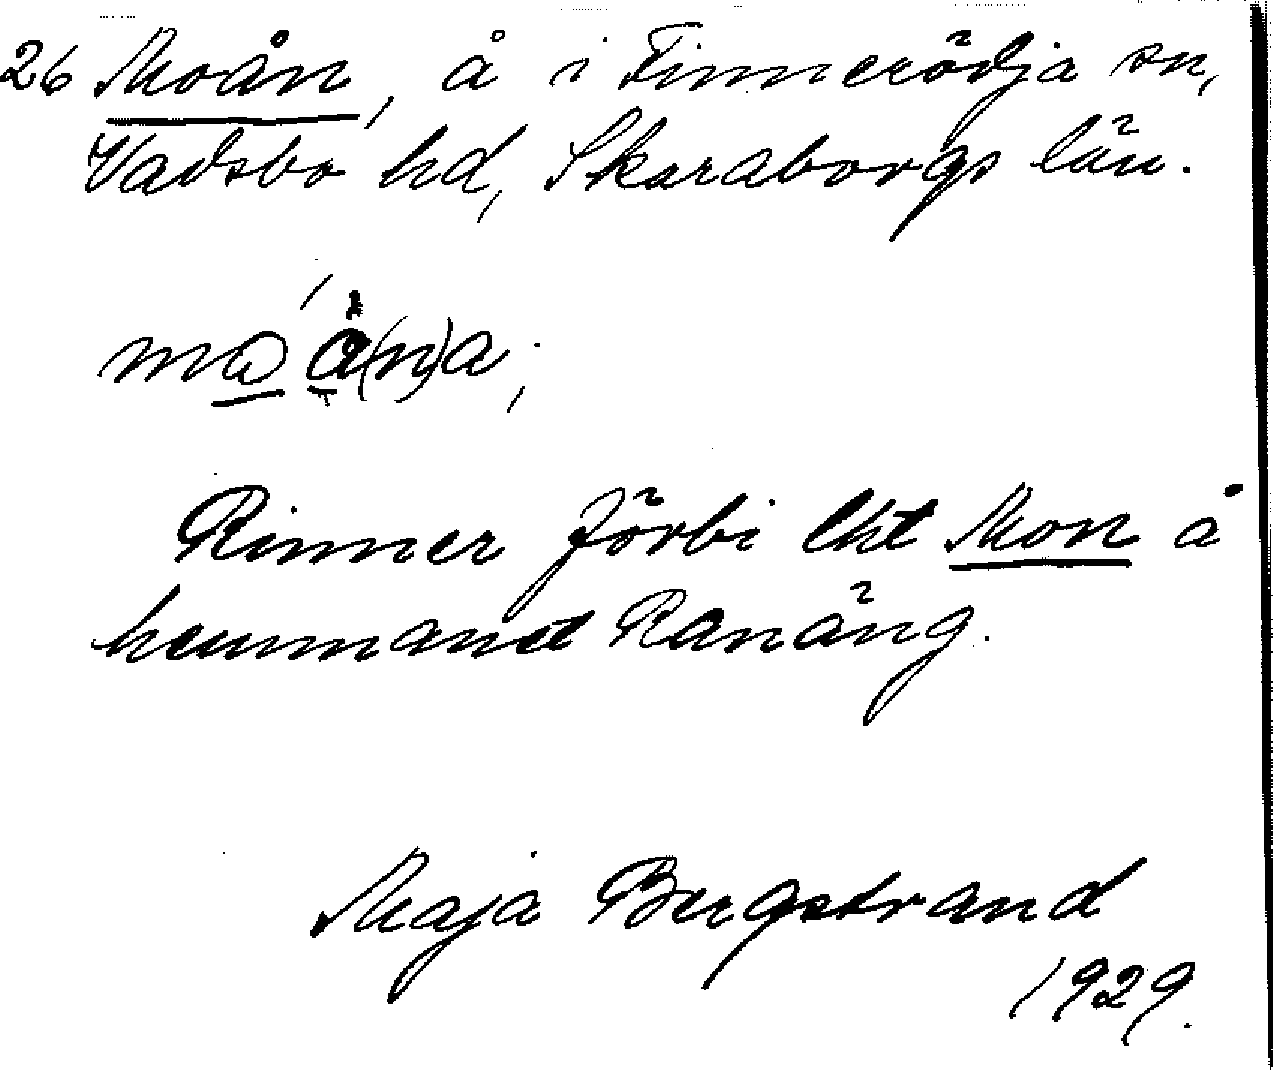 26 Moån, å i Finnerödja sn,
Vadsbo hd, Skaraborgs län.
Rinner förbi lht Mon å
hemmanet Ranäng.
Maja Bergstrand
1929.